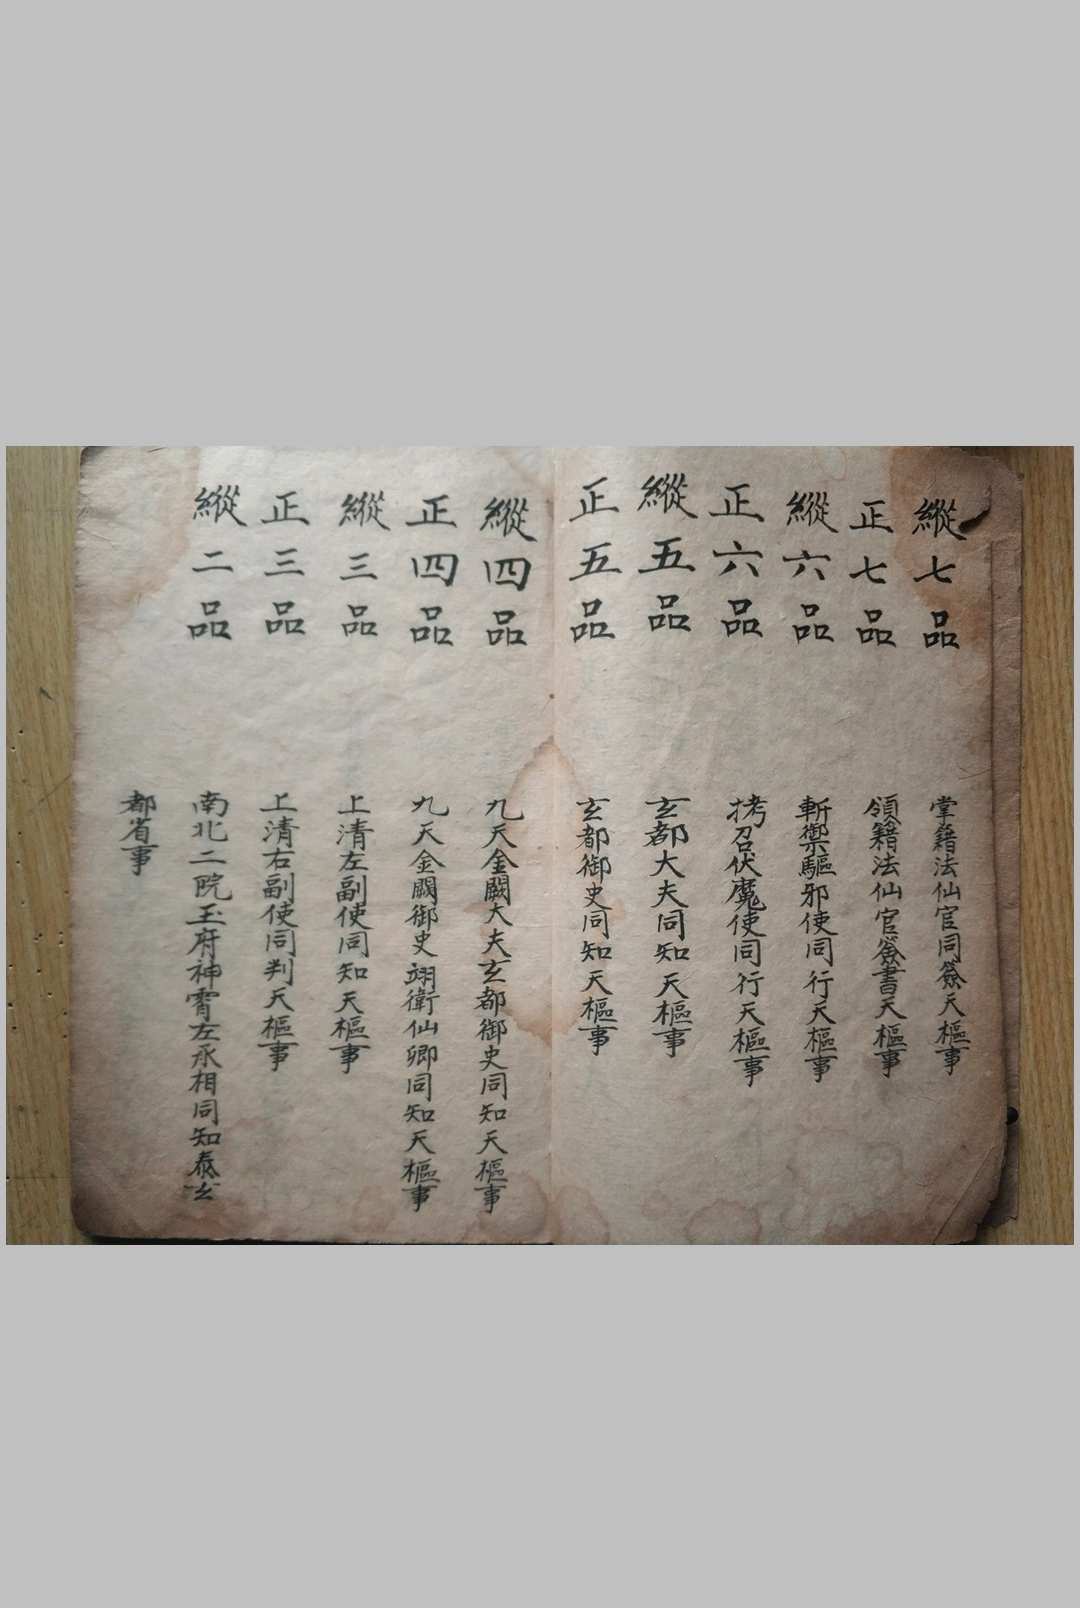 縱七品 掌籍法仙官同簽天樞事
正七品 領籍法仙官簽書天樞事
縱六品 斬禦驅邪使同行天樞事
正六品 拷召伏魔使同行天樞事
縱五品 玄都大夫同知天樞事
正五品 玄都御史同知天樞事
縱四品 九天金闕大夫玄都御史同知天樞事
正四品 九天金闕御史翊衛仙卿同知天樞事
縱三品 上清左副使同知天樞事
正三品 上清右副使同判天樞事
縱二品 南北二院玉府神霄左丞相同知泰玄
都省事